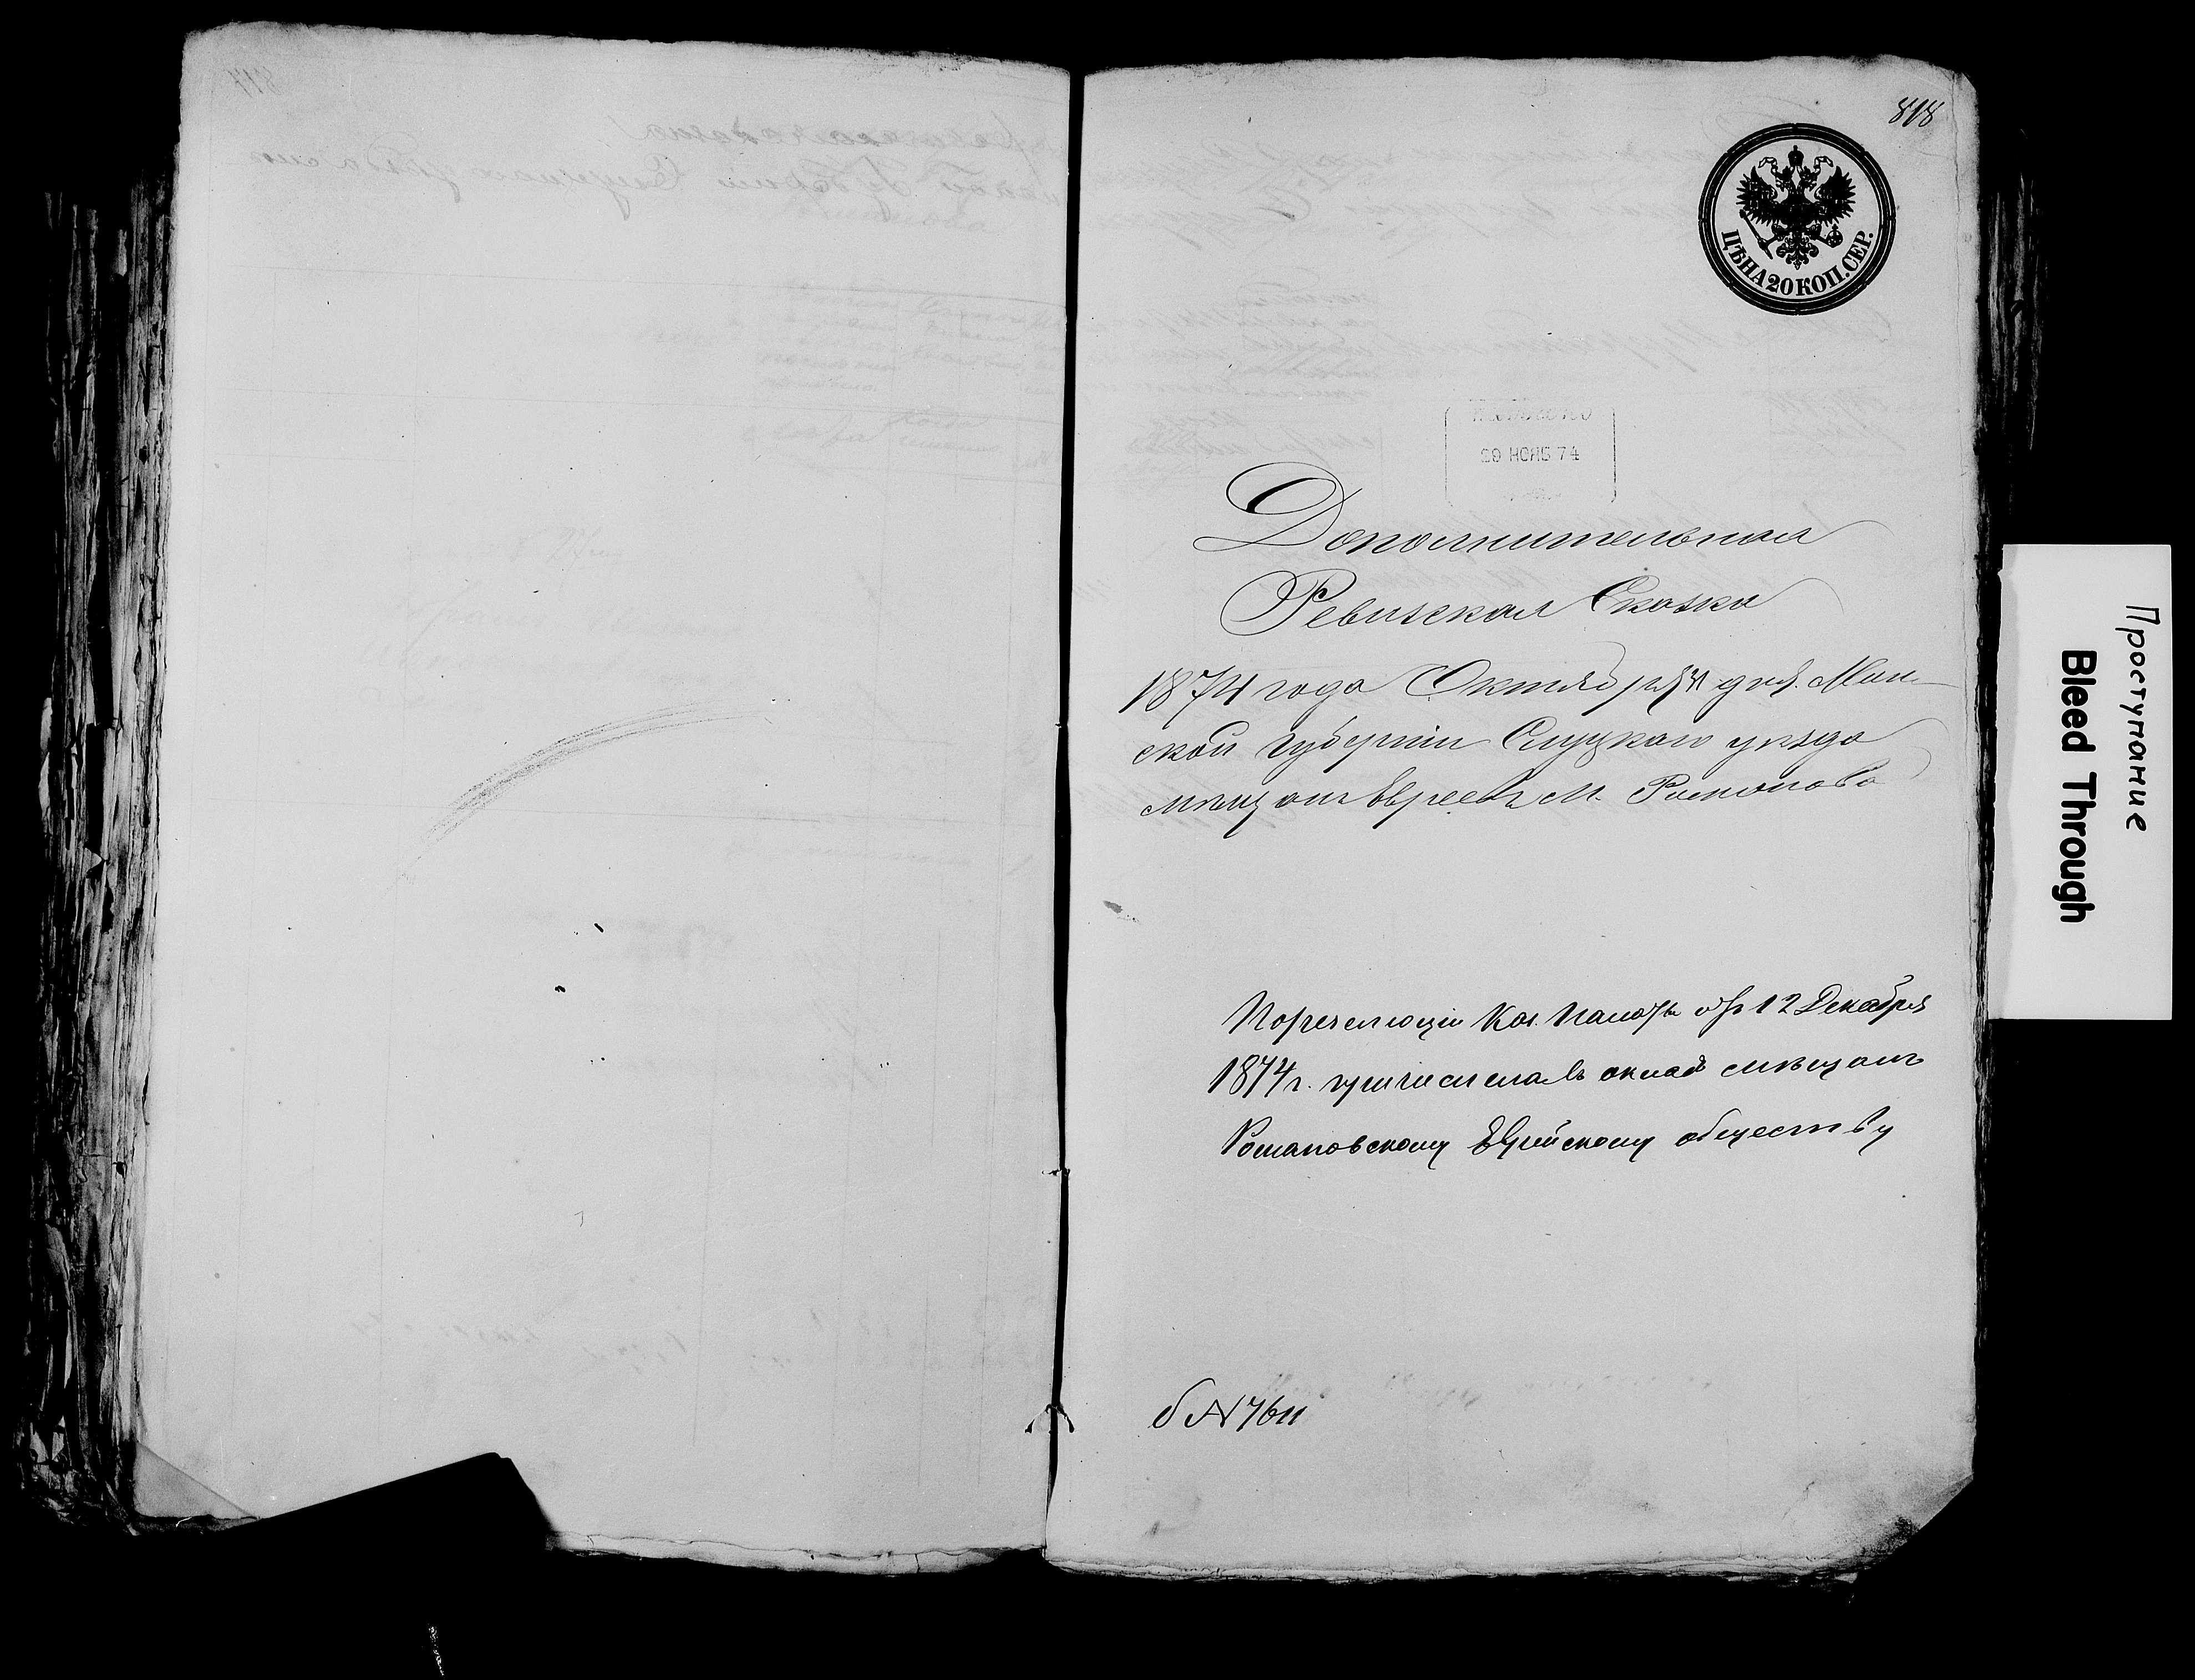 818
ЦѢНА 20 КОП. СЕР.
29 НОЯБ 74
Дополнительная
Ревизская Сказка
1874 года Октября дня. Мин-
ской губерніи Слуцкаго уѣзда
мѣщанъ Евреевъ м. Романова
Кая. Палаты отъ 12 Декабря
1874 г. причислена въ окладъ мѣщанъ
Романовскому Еврейскому обществу
б № 7611
Проступание
Bleed Through